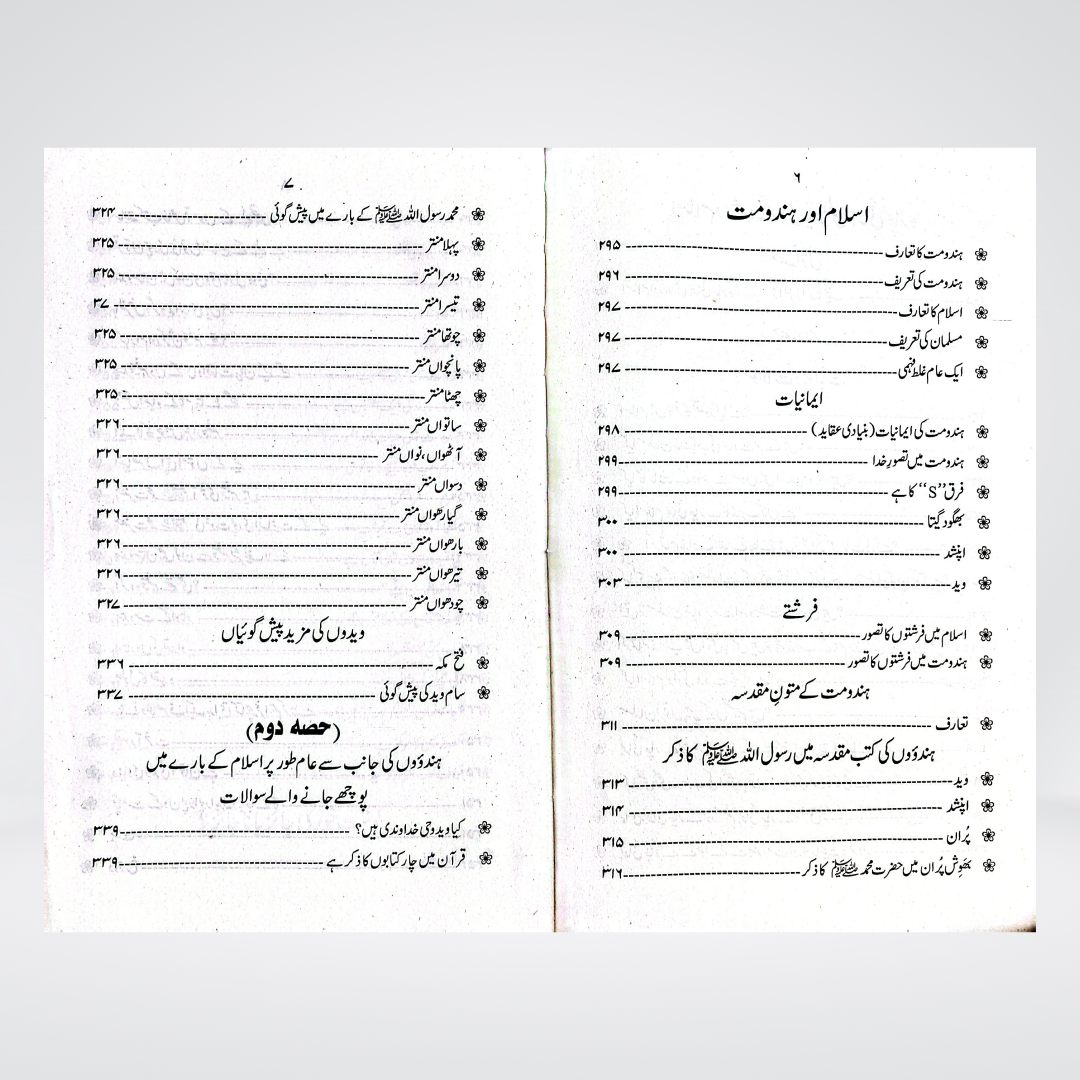 ٦
اسلام اور ہندومت
❀ ہندومت کا تعارف ---------- ۲۹۵
❀ ہندومت کی تعریف ---------- ۲۹۶
❀ اسلام کا تعارف ---------- ۲۹۷
❀ مسلمان کی تعریف ---------- ۲۹۷
❀ ایک عام غلط فہمی ---------- ۲۹۷
ایمانیات
❀ ہندومت کی ایمانیات (بنیادی عقاید) ---------- ۲۹۸
❀ ہندومت میں تصورِ خدا ---------- ۲۹۹
❀ فرق ”S“ کا ہے ---------- ۲۹۹
❀ بھگود گیتا ---------- ۳۰۰
❀ اپنشد ---------- ۳۰۰
❀ وید ---------- ۳۰۳
فرشتے
❀ اسلام میں فرشتوں کا تصور ---------- ۳۰۹
❀ ہندومت میں فرشتوں کا تصور ---------- ۳۰۹
ہندومت کے متونِ مقدسہ
❀ تعارف ---------- ۳۱۱
ہندوؤں کی کتب مقدسہ میں رسول اللہ ﷺ کا ذکر
❀ وید ---------- ۳۱۳
❀ اپنشد ---------- ۳۱۴
❀ پُران ---------- ۳۱۵
❀ بھَوِش پُران میں حضرت محمد ﷺ کا ذکر ---------- ۳۱۶
۷
❀ محمد رسول اللہ ﷺ کے بارے میں پیش گوئی ---------- ۳۲۴
❀ پہلا منتر ---------- ۳۲۵
❀ دوسرا منتر ---------- ۳۲۵
❀ تیسرا منتر ---------- ۳۷
❀ چوتھا منتر ---------- ۳۲۵
❀ پانچواں منتر ---------- ۳۲۵
❀ چھٹا منتر ---------- ۳۲۵
❀ ساتواں منتر ---------- ۳۲۶
❀ آٹھواں، نواں منتر ---------- ۳۲۶
❀ دسواں منتر ---------- ۳۲۶
❀ گیارھواں منتر ---------- ۳۲۶
❀ بارھواں منتر ---------- ۳۲۶
❀ تیرھواں منتر ---------- ۳۲۶
❀ چودھواں منتر ---------- ۳۲۷
ویدوں کی مزید پیش گوئیاں
❀ فتح مکہ ---------- ۳۳۶
❀ سام وید کی پیش گوئی ---------- ۳۳۷
(حصہ دوم)
ہندوؤں کی جانب سے عام طور پر اسلام کے بارے میں
پوچھے جانے والے سوالات
❀ کیا وید وحی خداوندی ہیں؟ ---------- ۳۳۹
❀ قرآن میں چار کتابوں کا ذکر ہے ---------- ۳۳۹